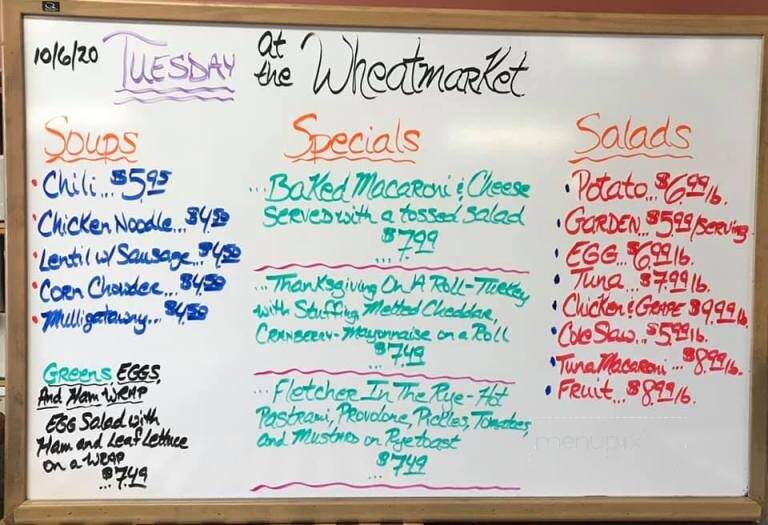 10/6/20 Tuesday at the Wheatmarket
Soups
• Chili... $5.95
• Chicken Noodle... $4.50
• Lentil w/ Sausage... $4.50
• Corn Chowder... $4.50
• Mulligatawny... $4.50
Greens EGGS,
And Ham WRAP
EGG Salad with
Ham and Leaf Lettuce
on a WRAP
...$7.49
Specials
...Baked Macaroni & Cheese
Served with a tossed salad
$7.99
...Thanksgiving On A Roll - Turkey
with Stuffing Melted Cheddar,
Cranberry-Mayonnaise on a Roll
...$7.49
...Fletcher In The Rye - Hot
Pastrami, Provolone, Pickles, Tomatoes,
and Mustard on Rye toast
...$7.49
Salads
• Potato... $6.99 lb.
• GARDEN... $5.99/serving
• EGG... $6.99 lb.
• Tuna... $7.99 lb.
• Chicken & GRAPE $9.99 lb.
• Cole Slaw... $5.99 lb.
• Tuna Macaroni... $8.99 lb.
• Fruit... $8.99 lb.
menupix